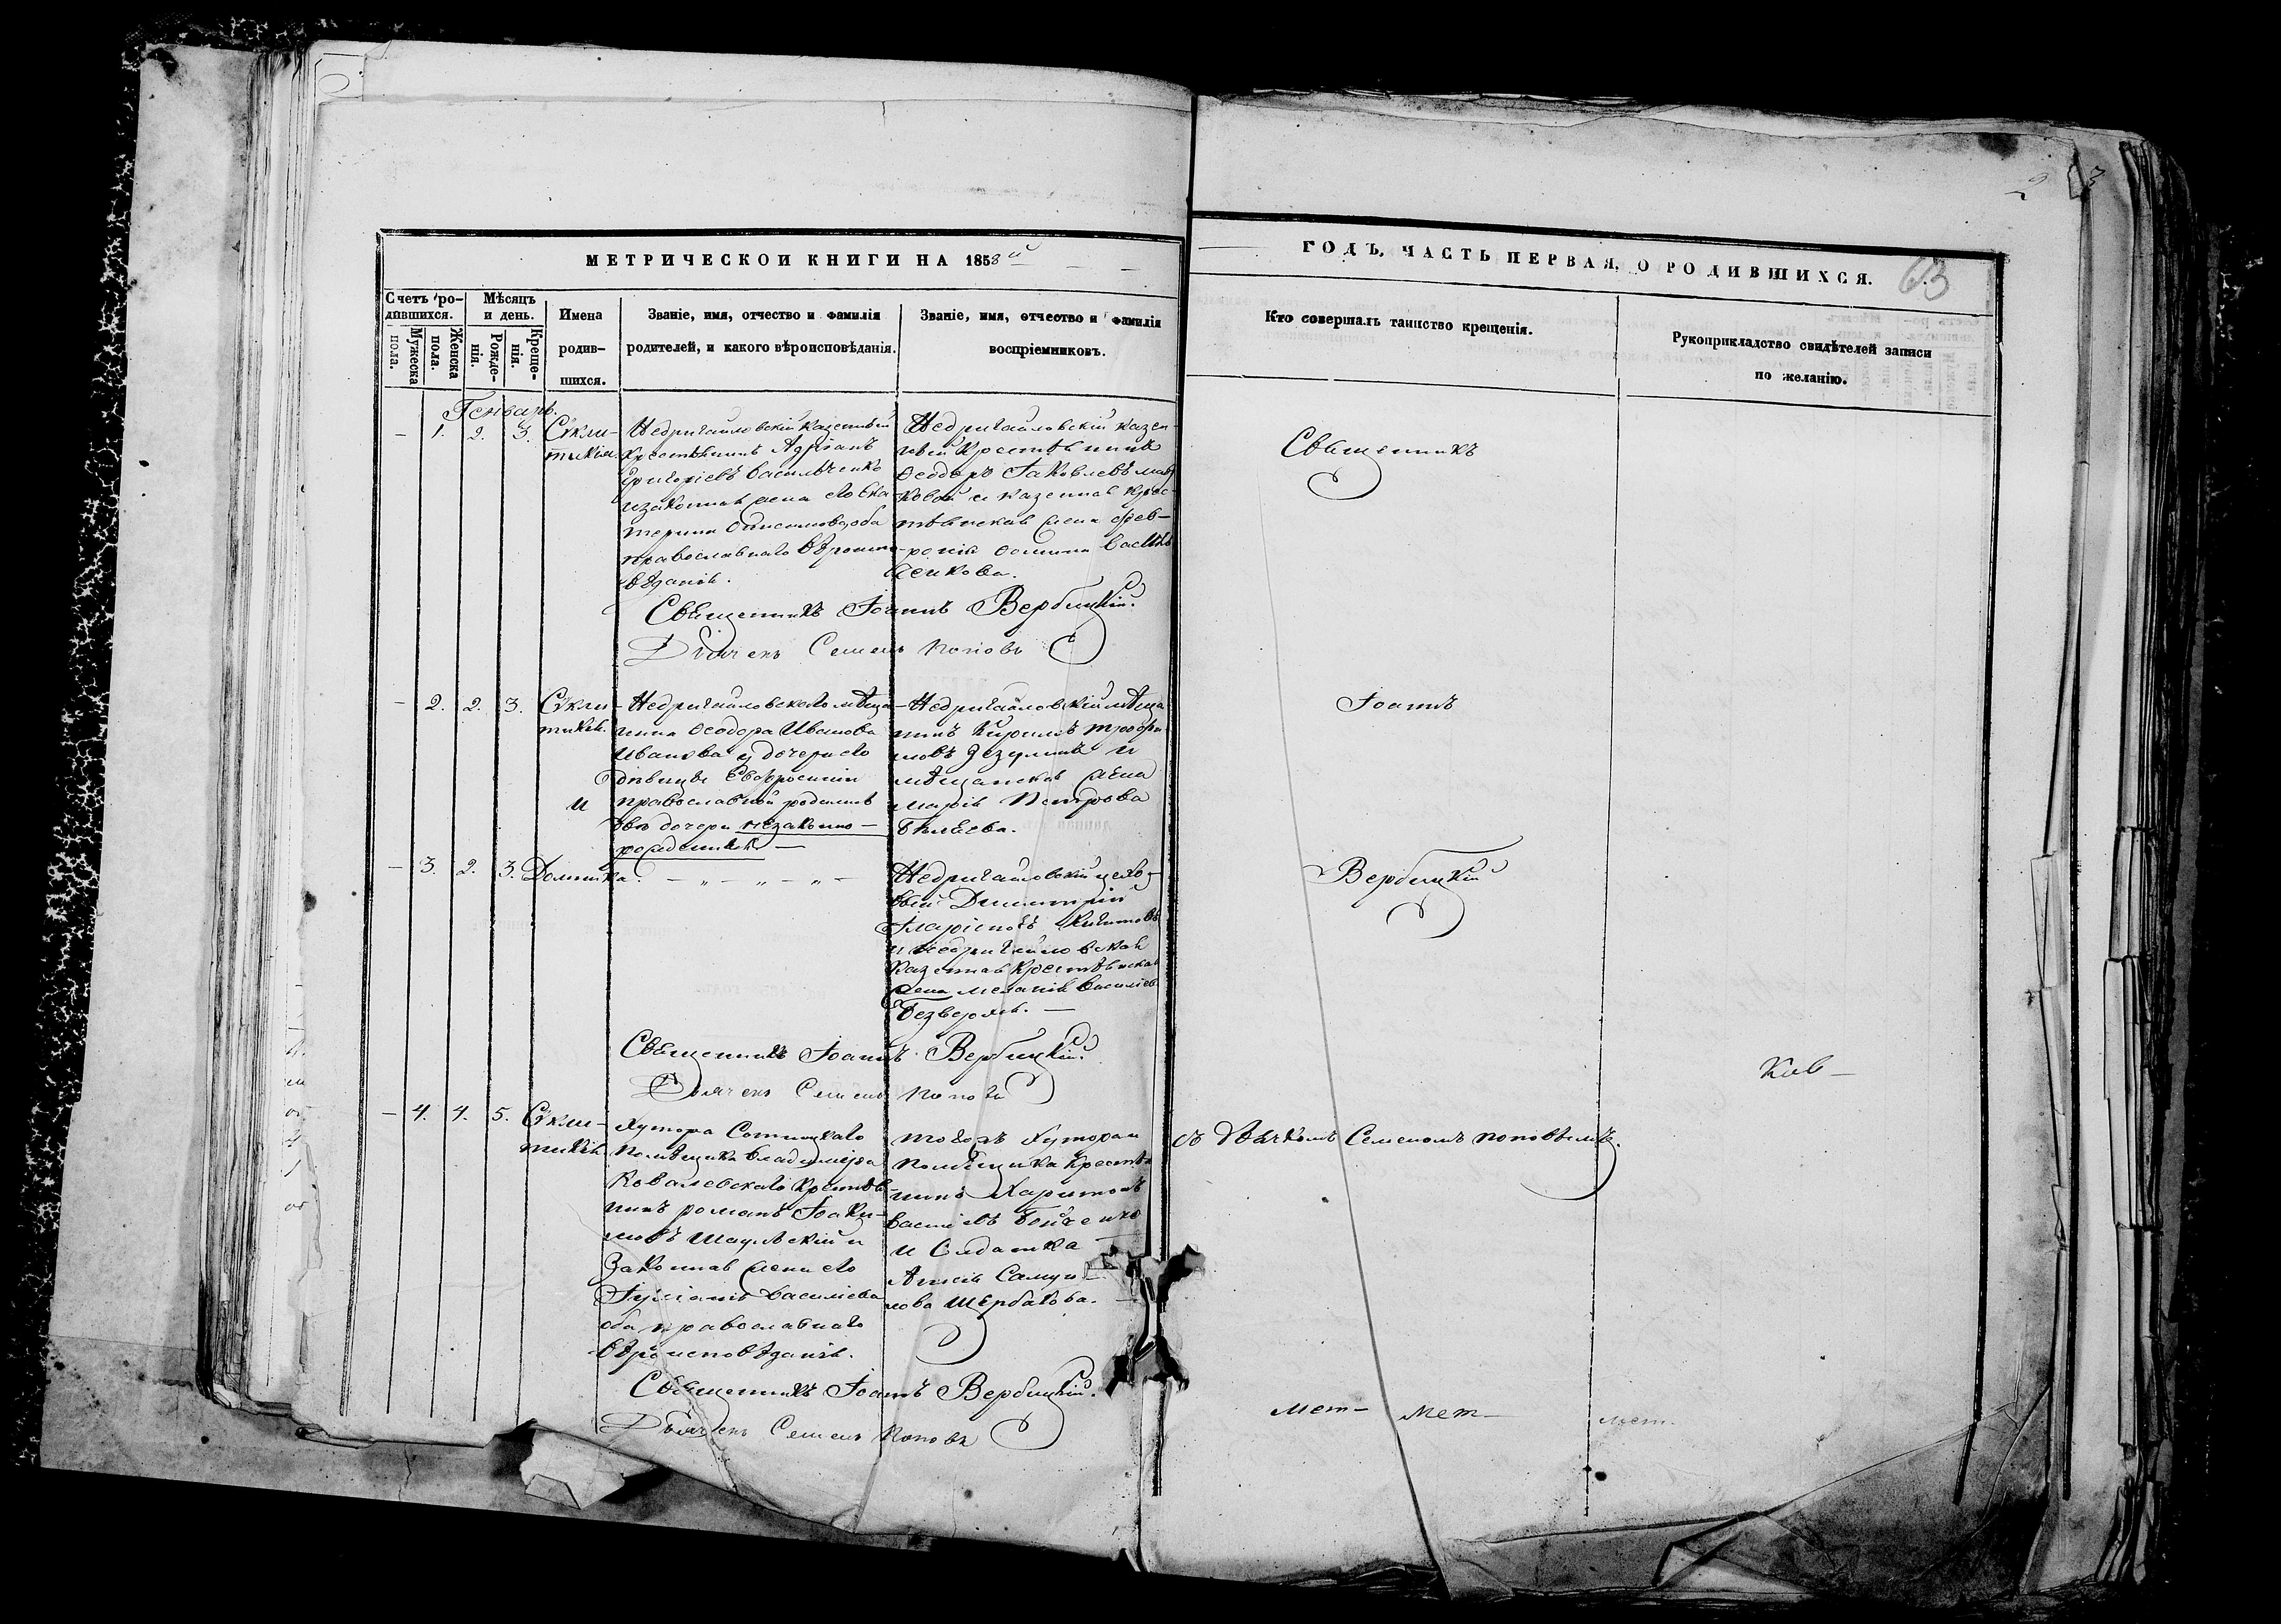 МЕТРИЧЕСКОЙ КНИГИ НА 1858й
ГОДЪ, ЧАСТЬ ПЕРВАЯ, О РОДИВШИХСЯ.
63
Счетъ родившихся.
Мужеска пола.
Женска пола.
Мѣсяцъ и день.
Рожденія.
Крещенія.
Имена родившихся.
Званіе, имя, отчество и фамилія
родителей, и какого вѣроисповѣданія.
Званіе, имя, отчество и фамилія
воспріемниковъ.
Кто совершалъ таинство крещенія.
Рукоприкладство свидѣтелей записи
по желанію.
Генварь.
– 1. 2. 3.
Сѵкли-
тикія
Недригайловскій казенный
крестьянинъ Адріанъ
Григоріевъ Васильченко
и законная жена его Ека
терина Онисимова, оба
православнаго вѣроиспо
вѣданія.
Недригайловскій казен
ный крестьянинъ
Ѳеодоръ Іаковлевъ
и казенная крес
тьянская жена Фев-
ронія Васильченкова.
Священникъ Іоаннъ Вербицкій.
Дьячекъ Семенъ Поповъ
– 2. 2. 3.
Сѵкли
тикія.
Недригайловскаго мѣща
нина Ѳеодора Иванова
Иванова у дочери его
дѣвицы Евфросиніи
православной родились
двѣ дочери незаконно-
рожденныя –
Недригайловскій мѣща
нинъ Кирилъ Трофи
мовъ Зезулинъ и
мѣщанская жена
Марія Петрова
Бѣляева.
и
– 3. 2. 3.
Домника.
– „ – „ – „ –
Недригайловскій цехо-
вый Димитрій
Иларіоновъ
и Недригайловская
казенная крестьянская
жена Меланія Василіева
Безверхая. –
Священникъ Іоаннъ Вербицкій.
Дьячекъ Семенъ Поповъ
– 4. 4. 5.
Сѵкли-
тикія
Хутора Сотницкаго
помѣщика Владимира
Ковалевскаго крестья
нинъ Романъ Іоаки-
мовъ и
законная жена его
Іуліанія Василіева
оба православнаго
вѣроисповѣданія.
того-жъ хутора и
помѣщика крестья
нинъ Харитонъ
Василіевъ Бойченко
и солдатка
Анна Самуи-
лова Щербакова. –
Священникъ Іоаннъ Вербицкій.
Дьячекъ Семенъ Поповъ
Священникъ
Іоаннъ
Вербицкій
съ дьячкомъ Семеномъ Поповымъ.